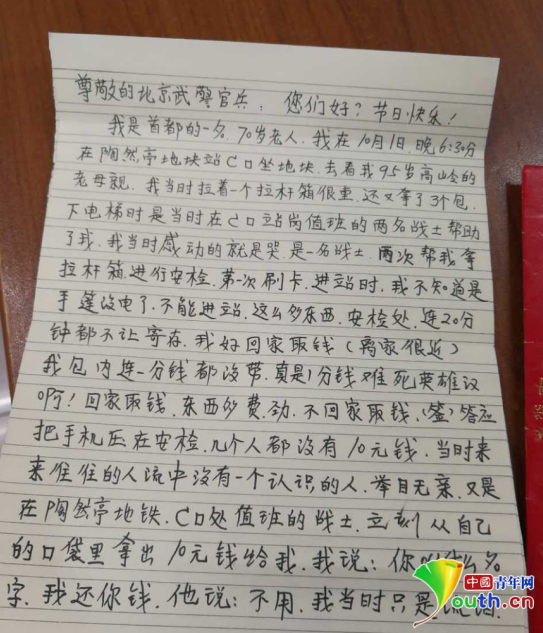 尊敬的北京武警官兵：您们好？节日快乐！
我是首都的一名，70岁老人，我在10月1日，晚6:30分
在陶然亭地块站C口坐地块，去看我95岁高岭的
老母亲，我当时拉着一个拉杆箱很重，还又拿了3个包，
下电梯时是当时在C口站岗值班的两名战士帮助
了我，我当时感动的就是哭，是一名战士，两次帮我拿
拉杆箱，进行安检，第一次刷卡，进站时，我不知道是
手莲没电了，不能进站，这么多东西，安检处，连20分
钟都不让寄存，我好回家取钱（离家很近）
我包内连一分钱都没带，真是1分钱难死英雄汉
啊！回家取钱，东西多费劲，不回家取钱，答应
把手机压在安检，几个人都没有10元钱，当时来
来住住的人流中没有一个认识的人，举目无亲，又是
在陶然亭地铁，C口处值班的战士，立刻从自己
的口袋里拿出10元钱给我，我说：你叫什么名
字，我还你钱，他说：不用，我当时只是
中國青年网
Youth.cn